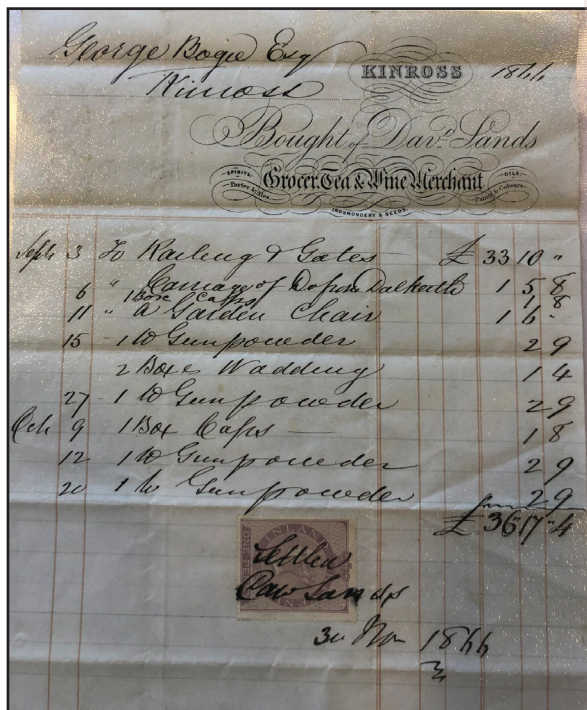 George Bogie Esq
Kinross
KINROSS 1866
Bought of Davd. Sands
SPIRITS, Porter & Ales. Grocer, Tea & Wine Merchant OILS, Paints & Colours.
IRONMONGERY & SEEDS.
Sept 3 To Railing & Gates £ 33 10 "
6 " Carriage of Do from Dalkeith 1 5 8
1 Box Caps 1 8
11 " a Garden Chair 1 6 "
15 - 1 lb Gunpowder 2 9
2 Boxes Wadding 1 4
27 - 1 lb Gunpowder 2 9
Oct 9 1 Box Caps — 1 8
12 1 lb Gunpowder 2 9
20 1 lb Gunpowder 2 9
£ 36 17 4
INLAND
Settled
Dav Sands
30 Nov 1866